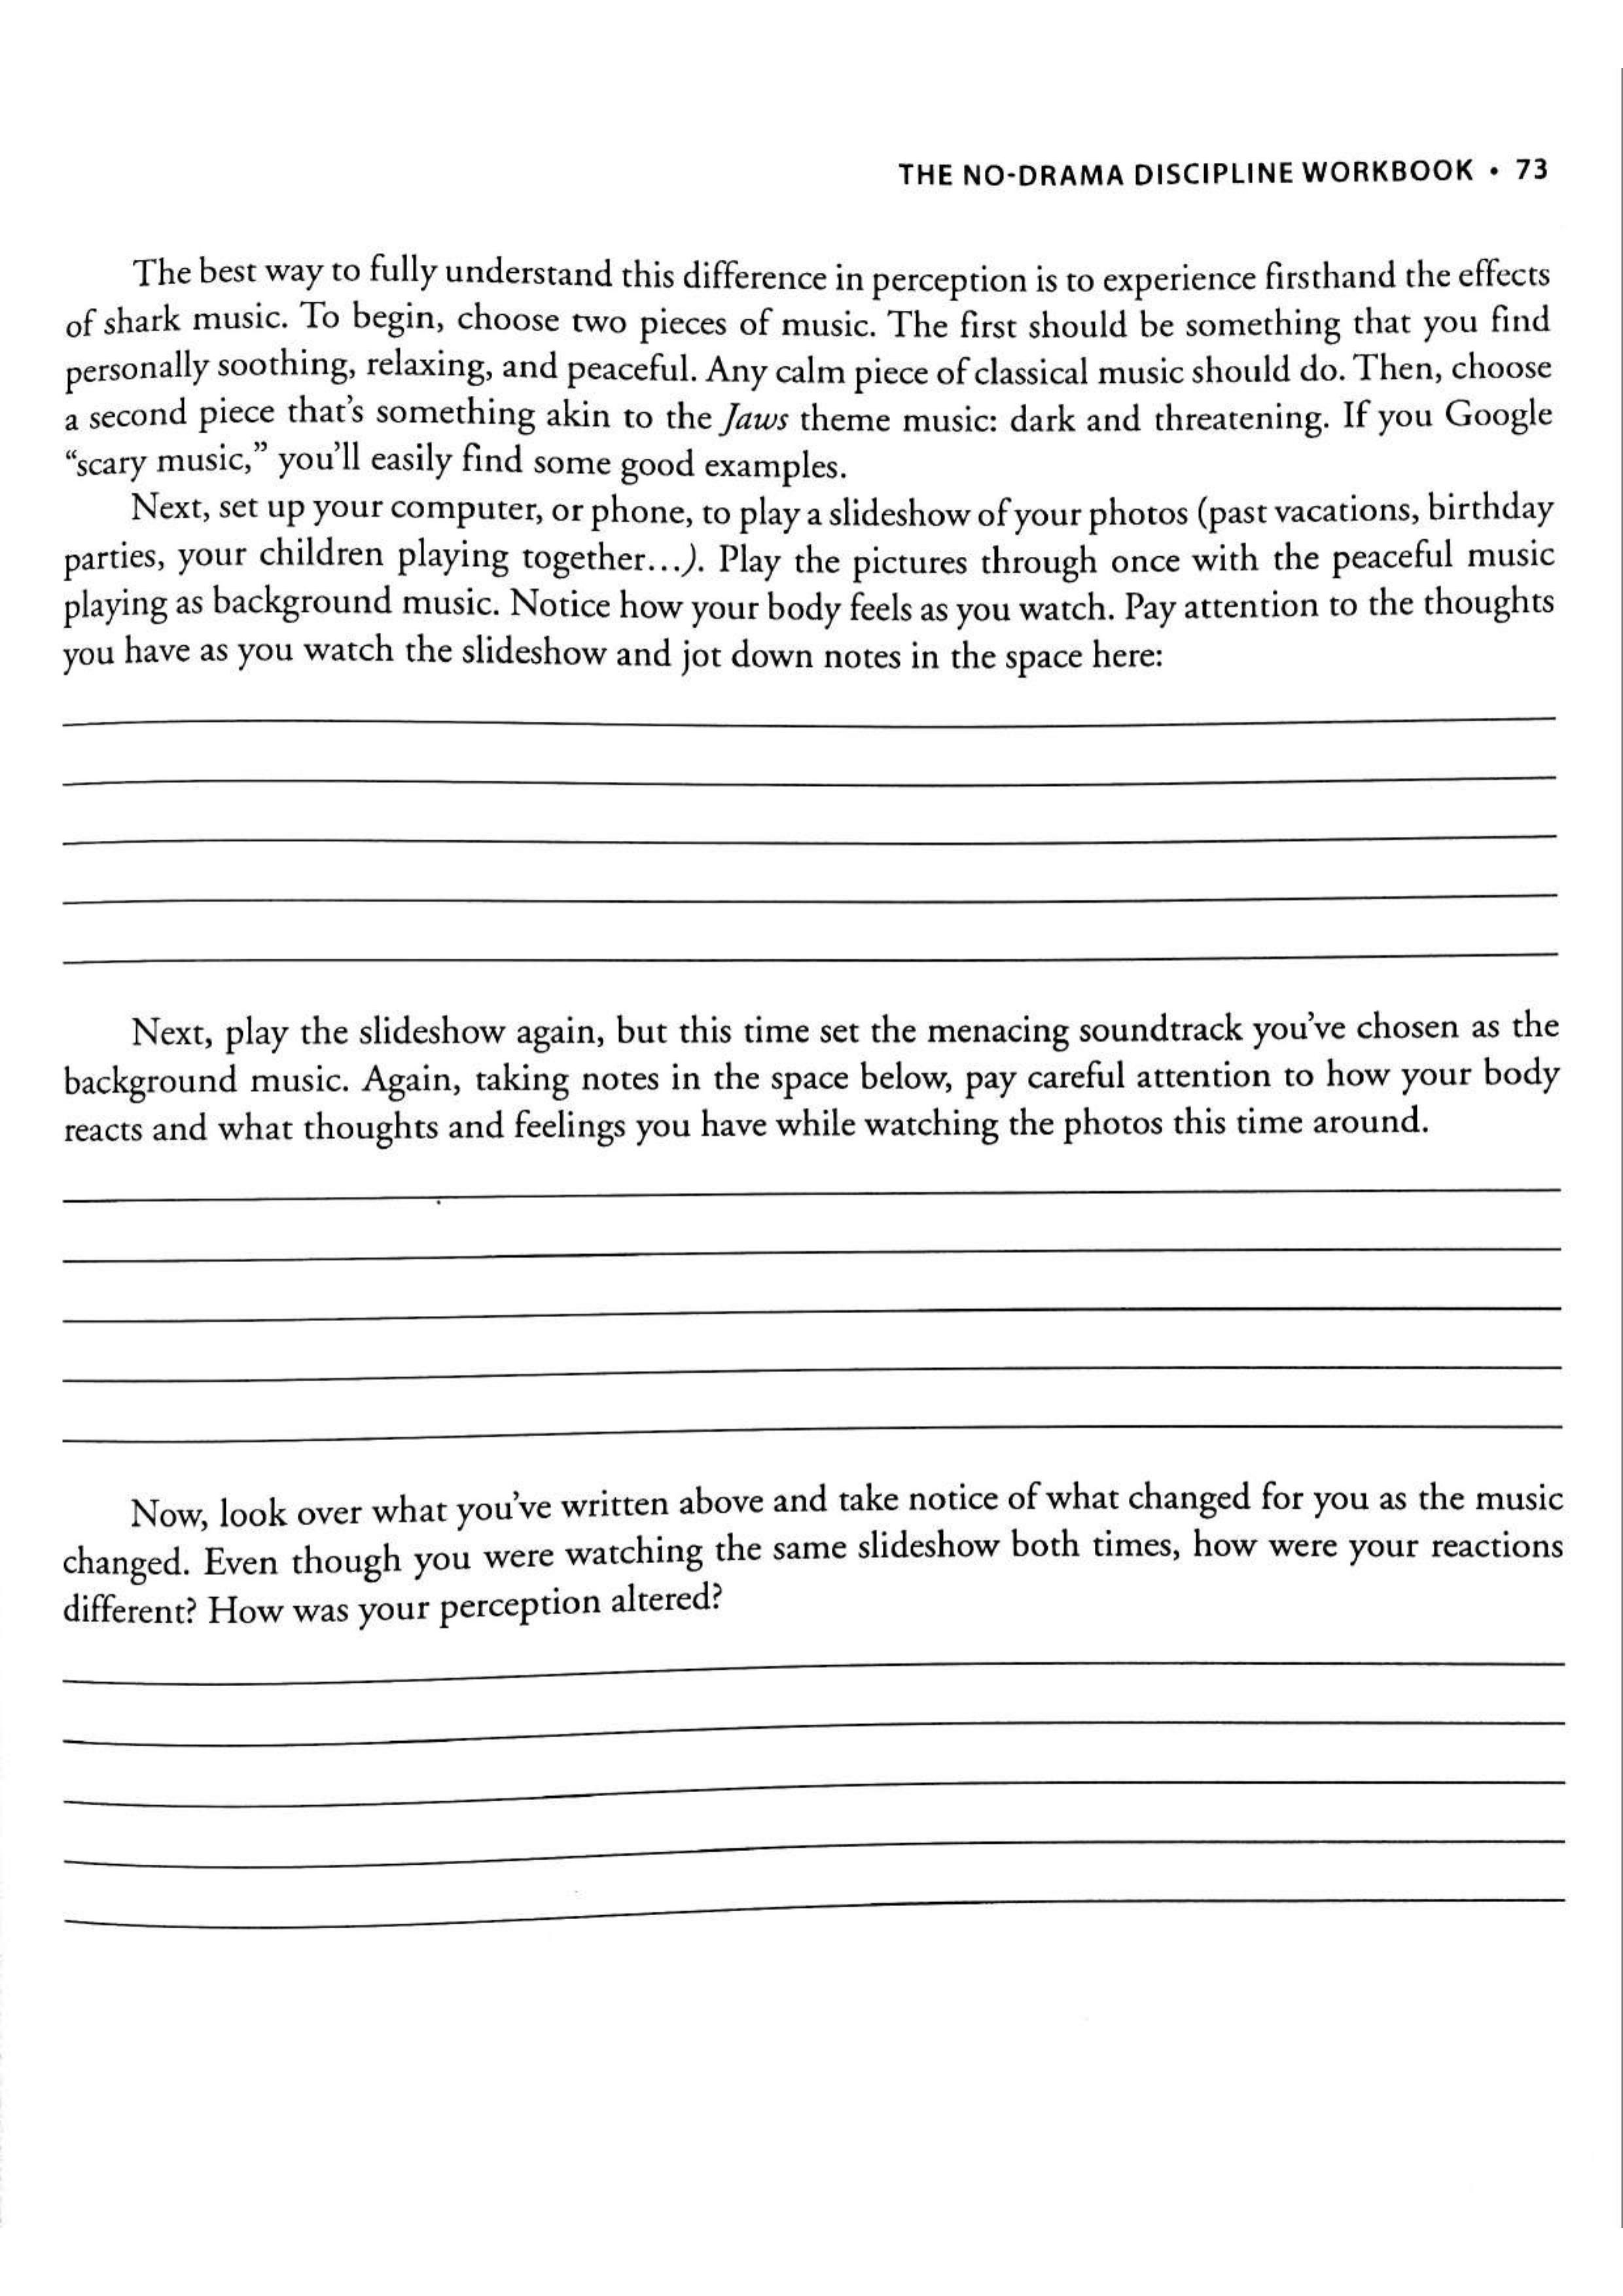 THE NO-DRAMA DISCIPLINE WORKBOOK • 73
The best way to fully understand this difference in perception is to experience firsthand the effects
of shark music. To begin, choose two pieces of music. The first should be something that you find
personally soothing, relaxing, and peaceful. Any calm piece of classical music should do. Then, choose
a second piece that's something akin to the Jaws theme music: dark and threatening. If you Google
“scary music,” you'll easily find some good examples.
Next, set up your computer, or phone, to play a slideshow of your photos (past vacations, birthday
parties, your children playing together...). Play the pictures through once with the peaceful music
playing as background music. Notice how your body feels as you watch. Pay attention to the thoughts
you have as you watch the slideshow and jot down notes in the space here:
Next, play the slideshow again, but this time set the menacing soundtrack you've chosen as the
background music. Again, taking notes in the space below, pay careful attention to how your body
reacts and what thoughts and feelings you have while watching the photos this time around.
Now, look over what you've written above and take notice of what changed for you as the music
changed. Even though you were watching the same slideshow both times, how were your reactions
different? How was your perception altered?